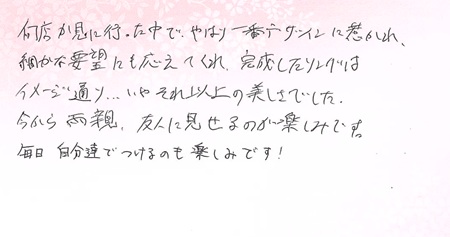 何店か見に行った中で、やはり一番デザインに惹かれ、
細かな要望にも応えてくれ、完成したリングは
イメージ通り…いやそれ以上の美しさでした。
今から両親、友人に見せるのが楽しみです。
毎日自分達でつけるのも楽しみです！